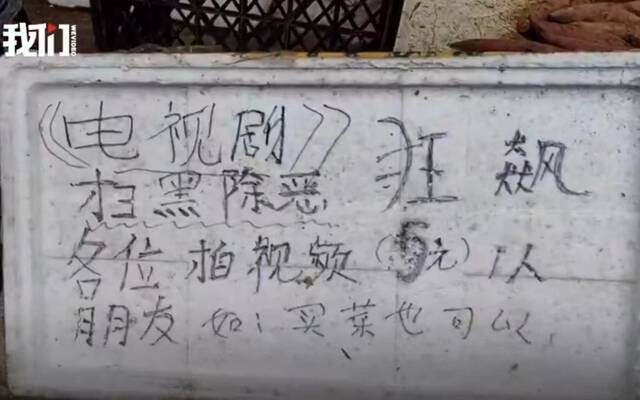 我们
WEVIDEO
《电视剧》 狂飙
扫黑除恶
各位拍视频(5元)1人
朋友如:买菜也可以,